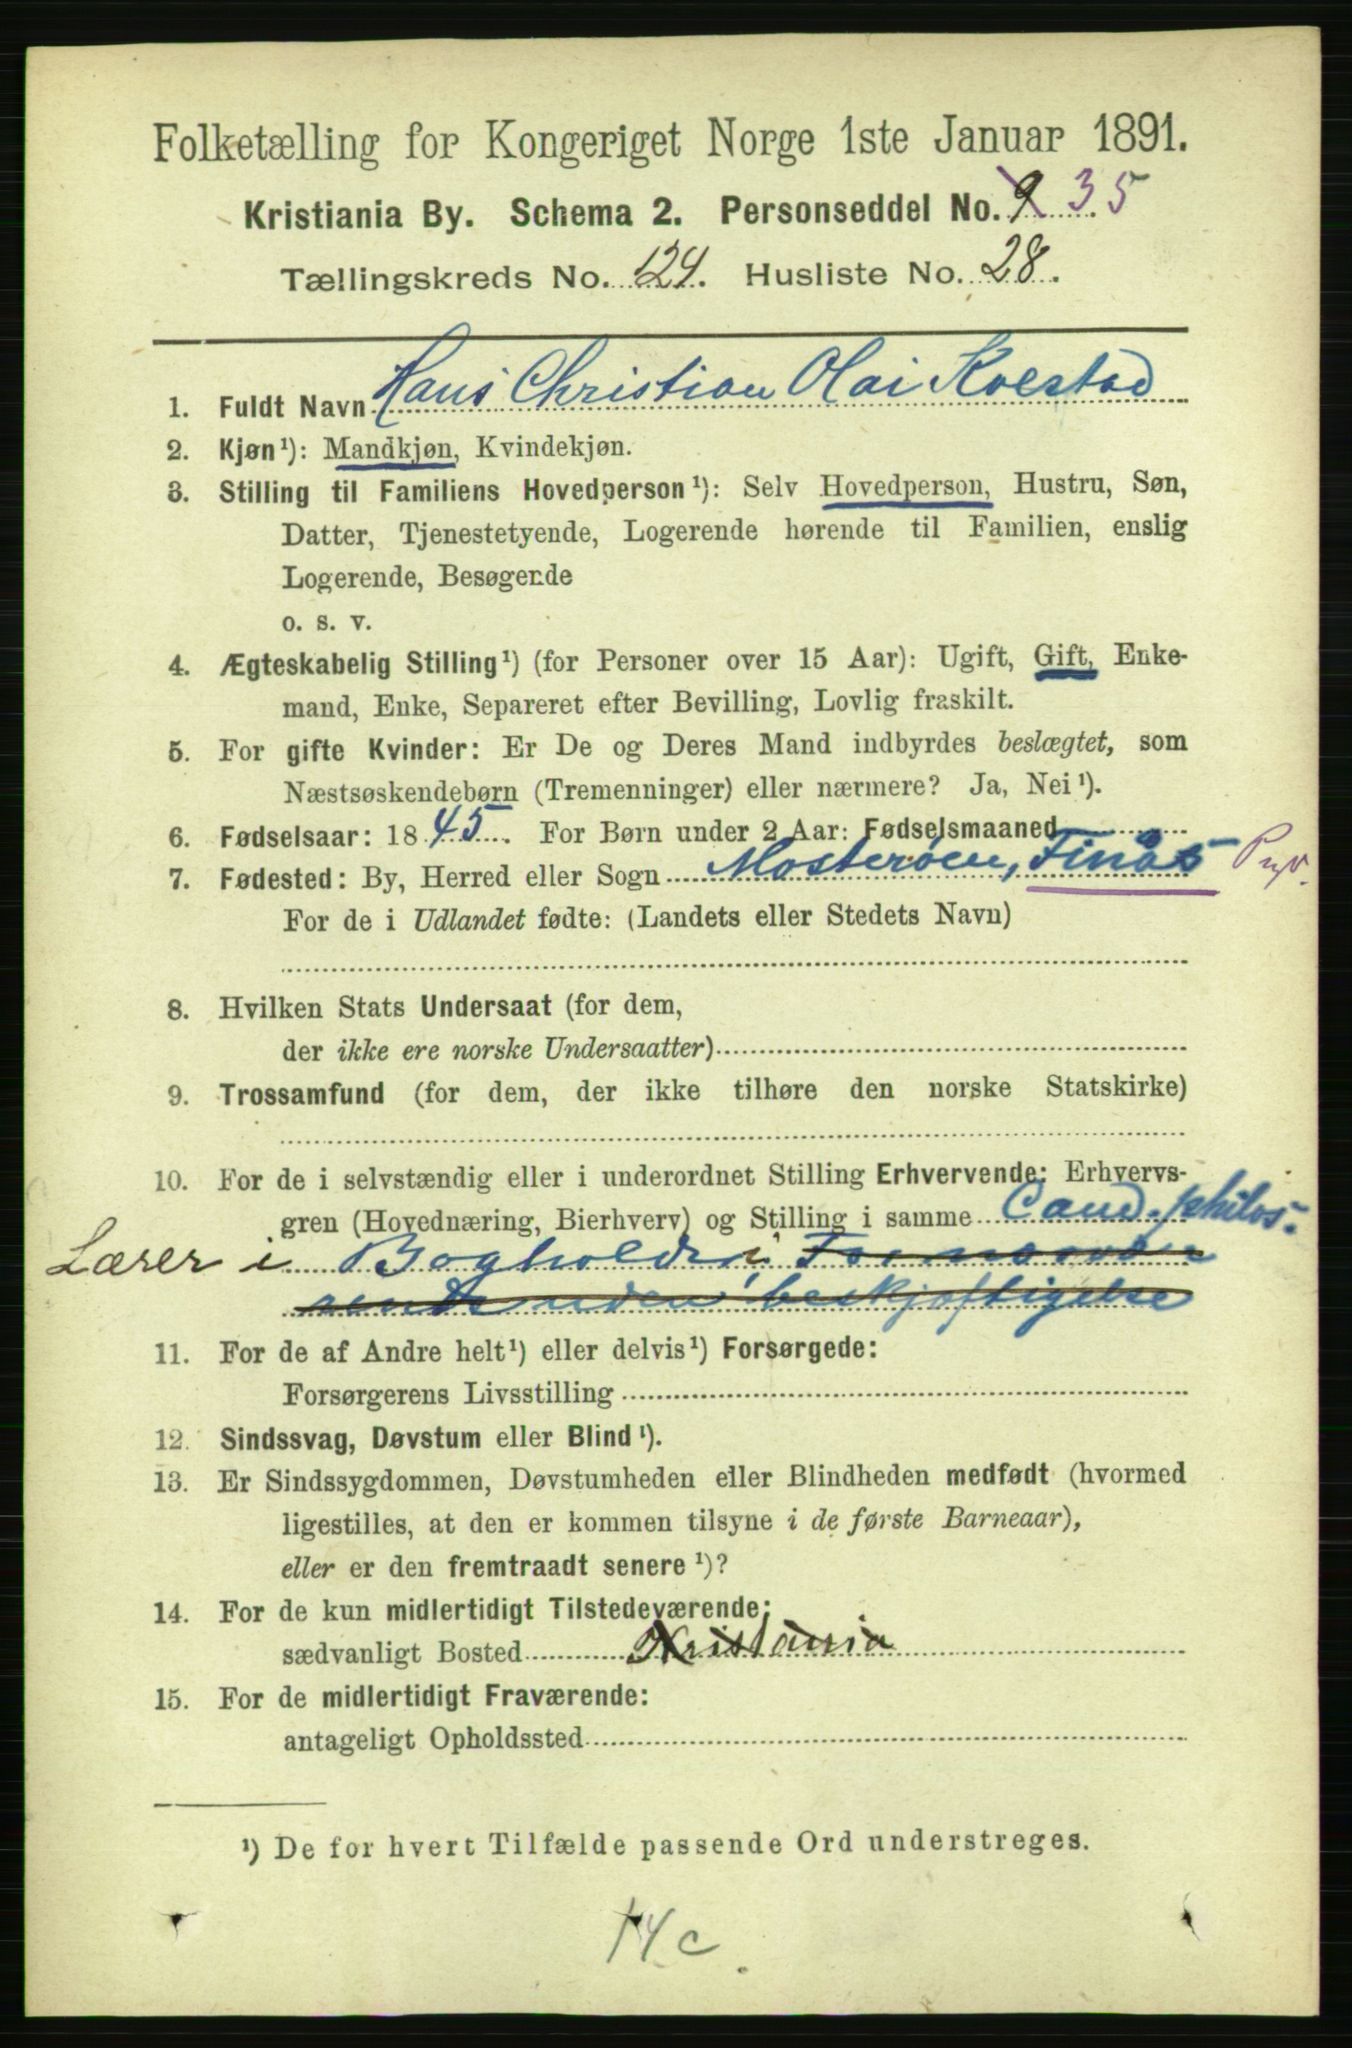 Folketælling for Kongeriget Norge 1ste Januar 1891.
Kristiania By. Schema 2. Personseddel No. 9 35
Tællingskreds No. 124. Husliste No. 28.
1. Fuldt Navn Hans Christian Olai Kolstad
2. Kjøn¹): Mandkjøn, Kvindekjøn.
3. Stilling til Familiens Hovedperson¹): Selv Hovedperson, Hustru, Søn,
Datter, Tjenestetyende, Logerende hørende til Familien, enslig
Logerende, Besøgende
o. s. v.
4. Ægteskabelig Stilling¹) (for Personer over 15 Aar): Ugift, Gift, Enke-
mand, Enke, Separeret efter Bevilling, Lovlig fraskilt.
5. For gifte Kvinder: Er De og Deres Mand indbyrdes beslægtet, som
Næstsøskendebørn (Tremenninger) eller nærmere? Ja, Nei¹).
6. Fødselsaar: 1845. For Børn under 2 Aar: Fødselsmaaned
7. Fødested: By, Herred eller Sogn Mosterøen, Finås
For de i Udlandet fødte: (Landets eller Stedets Navn)
8. Hvilken Stats Undersaat (for dem,
der ikke ere norske Undersaatter)
9. Trossamfund (for dem, der ikke tilhøre den norske Statskirke)
10. For de i selvstændig eller i underordnet Stilling Erhvervende: Erhvervs-
gren (Hovednæring, Bierhverv) og Stilling i samme Cand. philos.
Lærer i Bogholdri
uden beskjæftigelse
11. For de af Andre helt¹) eller delvis¹) Forsørgede:
Forsørgerens Livsstilling
12. Sindssvag, Døvstum eller Blind¹).
13. Er Sindssygdommen, Døvstumheden eller Blindheden medfødt (hvormed
ligestilles, at den er kommen tilsyne i de første Barneaar),
eller er den fremtraadt senere¹)?
14. For de kun midlertidigt Tilstedeværende:
sædvanligt Bosted Kristania
15. For de midlertidigt Fraværende:
antageligt Opholdssted
¹) De for hvert Tilfælde passende Ord understreges.
14 c